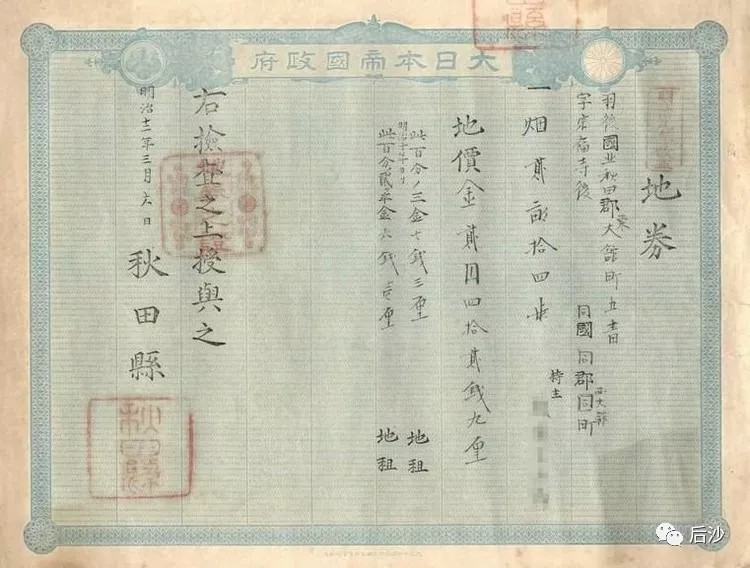 大日本帝國政府
地券
羽後國北秋田郡東大館町
字宗福寺後
同國同郡同町
持主
一畑貳畝拾四歩
地價金貳円四拾貳銭九厘
此百分ノ三金七銭三厘 地租
明治十年ヨリ
此百分貳ヶ半金六銭壹厘 地租
右撿査之上授與之
明治十二年三月六日
秋田縣
秋田縣
后沙